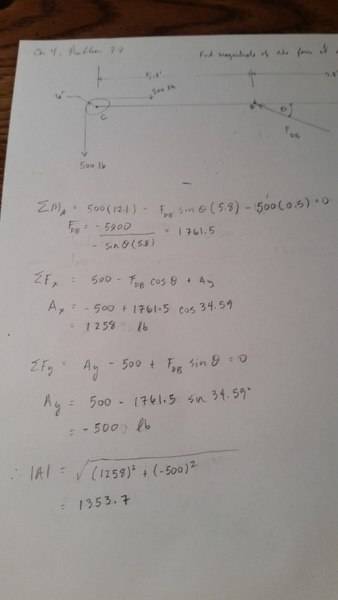 Ch 4, Problem
Find magnitude of the force at
500 lb
6"
C
θ
F_DB
500 lb
ΣM_A = 500(12.1) - F_DB sin θ (5.8) - 500(0.5) = 0
F_DB = -5800 / -sin θ(5.8) = 1761.5
ΣF_x = 500 - F_DB cos θ + A_x
A_x = -500 + 1761.5 cos 34.59
= 1258 lb
ΣF_y = A_y - 500 + F_DB sin θ = 0
A_y = 500 - 1761.5 sin 34.59°
= -500 lb
∴ |A| = √(1258)² + (-500)²
= 1353.7